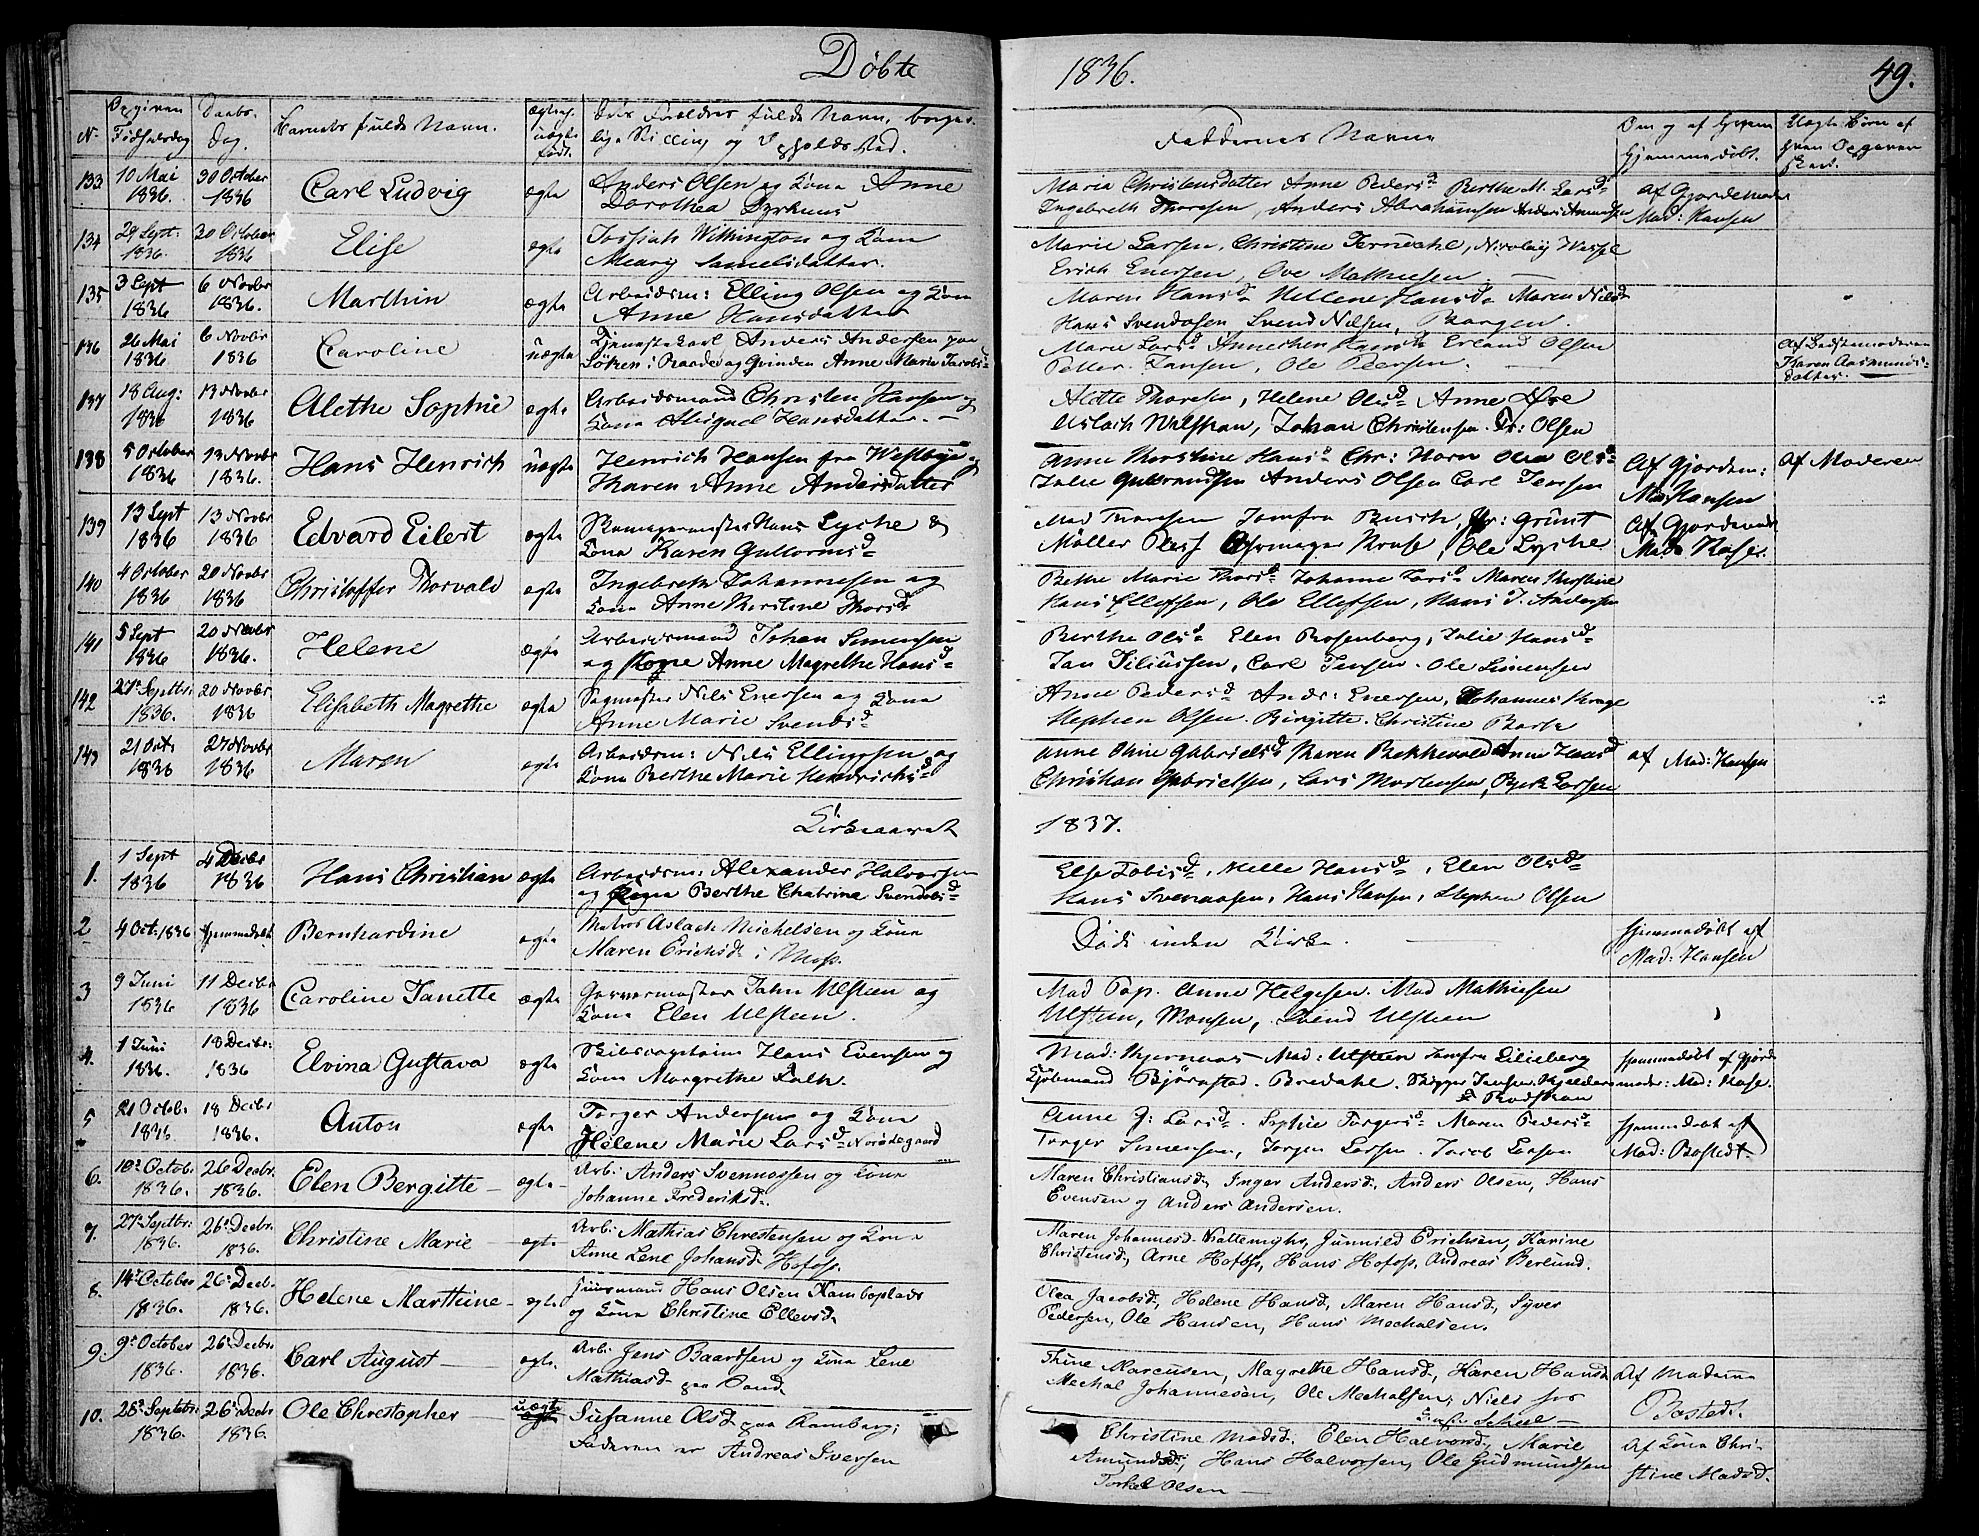 Døbte
1836.
49.
N.
Opgiven Fødselsdag
Daabs Dag.
Barnets fulde Navn.
ægte el. uægte født.
Forældres fulde Navn, borgerlige Stilling og Opholdssted.
Faddernes Navne
Om og af hvem Hjemmedøbt.
133 10 Mai 1836. 30 October 1836 Carl Ludvig ægte Anders Olsen og Kona Anne Dorothea
Maria Christensdatter Anne Pedersd Berthe M. Larsd
Ingebreth Thoresen, Anders Abrahamsen Anders
Af Gjordemoder Mad: Hansen
134 29 Sept: 1836. 30 October 1836 Elise ægte Josiah Withington og Kona
Meary Samelsdatter.
Marie Larsen, Christine, Nicolay Wessel
Erich Enersen, Ove Mathiesen
135 3 Sept 1836 6 Novbr 1836. Marthin ægte Arbeidsm: Elling Olsen og Kona
Anne Hansdatter
Maren Hansd Hellene Hansd Maren Nilsd
Hans Svendsen, Svend Nilsen, Borgen.
136 26 Mai 1836 6 Novbr 1836 Caroline uægte Tjenestekarl Anders Andersen paa
i Raade og Qvinden Anne Marie Jacobsd
Marie Larsd Annechen Hansd Erland Olsen
Petter Jansen, Ole Pedersen.
Af Bedstemoderen Karen Aasmundsdatter.
137 18 Aug: 1836 13 Novbr 1836 Alethe Sophie ægte Arbeidsmand Christen Hansen og
Kona Abigael Hansdatter.
Alette Thoresen, Helene Olsd Anne Øre
Aslach, Johan Christensen. Olsen
138 5 October 1836 13 Novbr 1836. Hans Henrich uægte Henrich Hansen fra Westbye og
Karen Anne Andersdatter
Anne Kerstine Hansd Chr: Horn Olea Olsd
Julie Gulbrandsen Anders Olsen Carl Jensen
Af Gjordem: Mad Hansen
Af Moderen
139 13 Sept 1836 13 Novbr 1836 Edvard Eilert ægte Skomagermester Hans Lyche &
Kona Karen Guttormsd
Mad Thoresen Jomfru Busch, Hr: Grünt
Møller Kruse, Ole Lyche
140 4 October 1836 20 Novbr 1836 Christoffer Thorvald ægte Ingebreth Johannesen og
Kona Anne Kerstine Thorsd
Bethe Marie Thorsd Johanne Larsd Maren Kerstine
Hans Ellefsen, Ole Ellefsen, Hans J. Andersen
141 5 Sept 1836 20 Novbr 1836. Helene ægte Arbeidsmand Johan Simensen
og Kone Anne Magrethe Hansd
Berthe Olsd Elen Rosenberg, Julie Hansd
Jan Siliussen, Carl Jensen. Ole Simensen
142 27 Septbr: 1836. 20 Novbr: 1836 Elisabeth Magrethe ægte Sagmester Nils Enersen og Kona
Anne Marie Svendsd
Anne Pedersd Ands: Enersen, Johannes Krage
Stephen Olsen. Birgitte. Christine Bache
143 21 Oct: 1836 27 Novbr 1836 Maren ægte Arbeidsm: Nils Ellingsen og
Kona Berthe Marie Hendrichsd
Anne Oline Gabrielsd Karen Bekkevold Anne Hansd
Christian Gabrielsen, Lars Mortensen, Larsen
af Mad: Hansen
Kirkeaaret 1837.
1. 1 Sept 1836 4 Decbr 1836 Hans Christian ægte Arbeidsm: Alexander Halvorsen
og Kona Berthe Chatrina Svendsd
Else Tobisd, Helle Hansd, Elen Olsd
Hans Svendsen, Hans Hansen, Stephen Olsen
2 4 Oct: 1836 hjemmedøbt Bernhardine ægte Matros Aslach Michelsen og Kona
Maren Erichsd i Moss.
Død inden Kirke.
hjemmedøbt af Mad: Hansen
3 9 Juni 1836 11 Decbr 1836 Caroline Janette ægte Garvermester Jahn Ulsteen og
Kona Elen Ulsteen.
Mad Pap. Anne Helgesen. Mad Mathiesen
Ulsteen, Monsen, Svend Ulsteen
4. 1 Juni 1836. 18 Decbr: 1836 Elvina Gustava ægte Skibscaptain Hans Evensen og
Kona Margrethe Falk.
Mad: Kjernaas Mad: Ulsteen Jomfru Lilieberg
Kjøbmand Bjørnstad. Bredahl. Skipper Jensen
hjemmedøbt af Gjordemoder: Mad: Kase.
5 21 Octob: 1836 18 Decbr 1836. Anton ægte Torger Andersen og Kona
Helene Marie Larsd Norødegaard
Anne G: Larsd. Sophie Torgersd Maren Pedersd
Torger Simensen, Jørgen Larsen. Jacob Larsen
hjemmedøbt af Mad: Bostedt
6. 10 October 1836. 26 Decbr. 1836. Elen Bergitte ægte Arb: Anders Svennossen og Kona
Johanne Frederiksd.
Maren Christiansd, Inger Andersd. Anders Olsen, Hans
Evensen og Anders Andersen.
7. 27 Septbr: 1836. 26 Decbr. 1836. Christine Marie ægte Arb: Mathias Chrestensen og Kona
Anne Lene Johansd. Hofoss.
Maren Johannesd. Gunnild Erichsen, Karine
Christensd, Arne Hofoss, Hans Hofoss, Andreas Berlund.
8. 14 October 1836. 26 Decb. 1836. Helene Marthine ægte Huusmand Hans Olsen Kamboplads
og Kona Christine Ellevsd.
Olea Jacobsd, Helene Hansd, Maren Hansd, Syver
Pedersen, Ole Hansen, Hans Mechalsen.
9. 9 October 1836. 26 Decbr. 1836. Carl August ægte. Arb: Jens Baardsen og Kona Lene
Mathiasd
Thine Marcusen, Magrethe Hansd, Karen Hansd
Mechal Johannesen, Ole Mechalsen, Niels
Af Madame Bostedt.
10. 28 Septbr: 1836. 26 Decbr 1836. Ole Chrestopher uægte Susanne Olsd paa Ramberg;
Faderen er Andreas Iversen
Christine Madsd. Elen Halvorsd, Marie
Amundsd, Hans Halvorsen, Ole Gudmundsen
Torkel Olsen
Af Kona Christine Madsd.